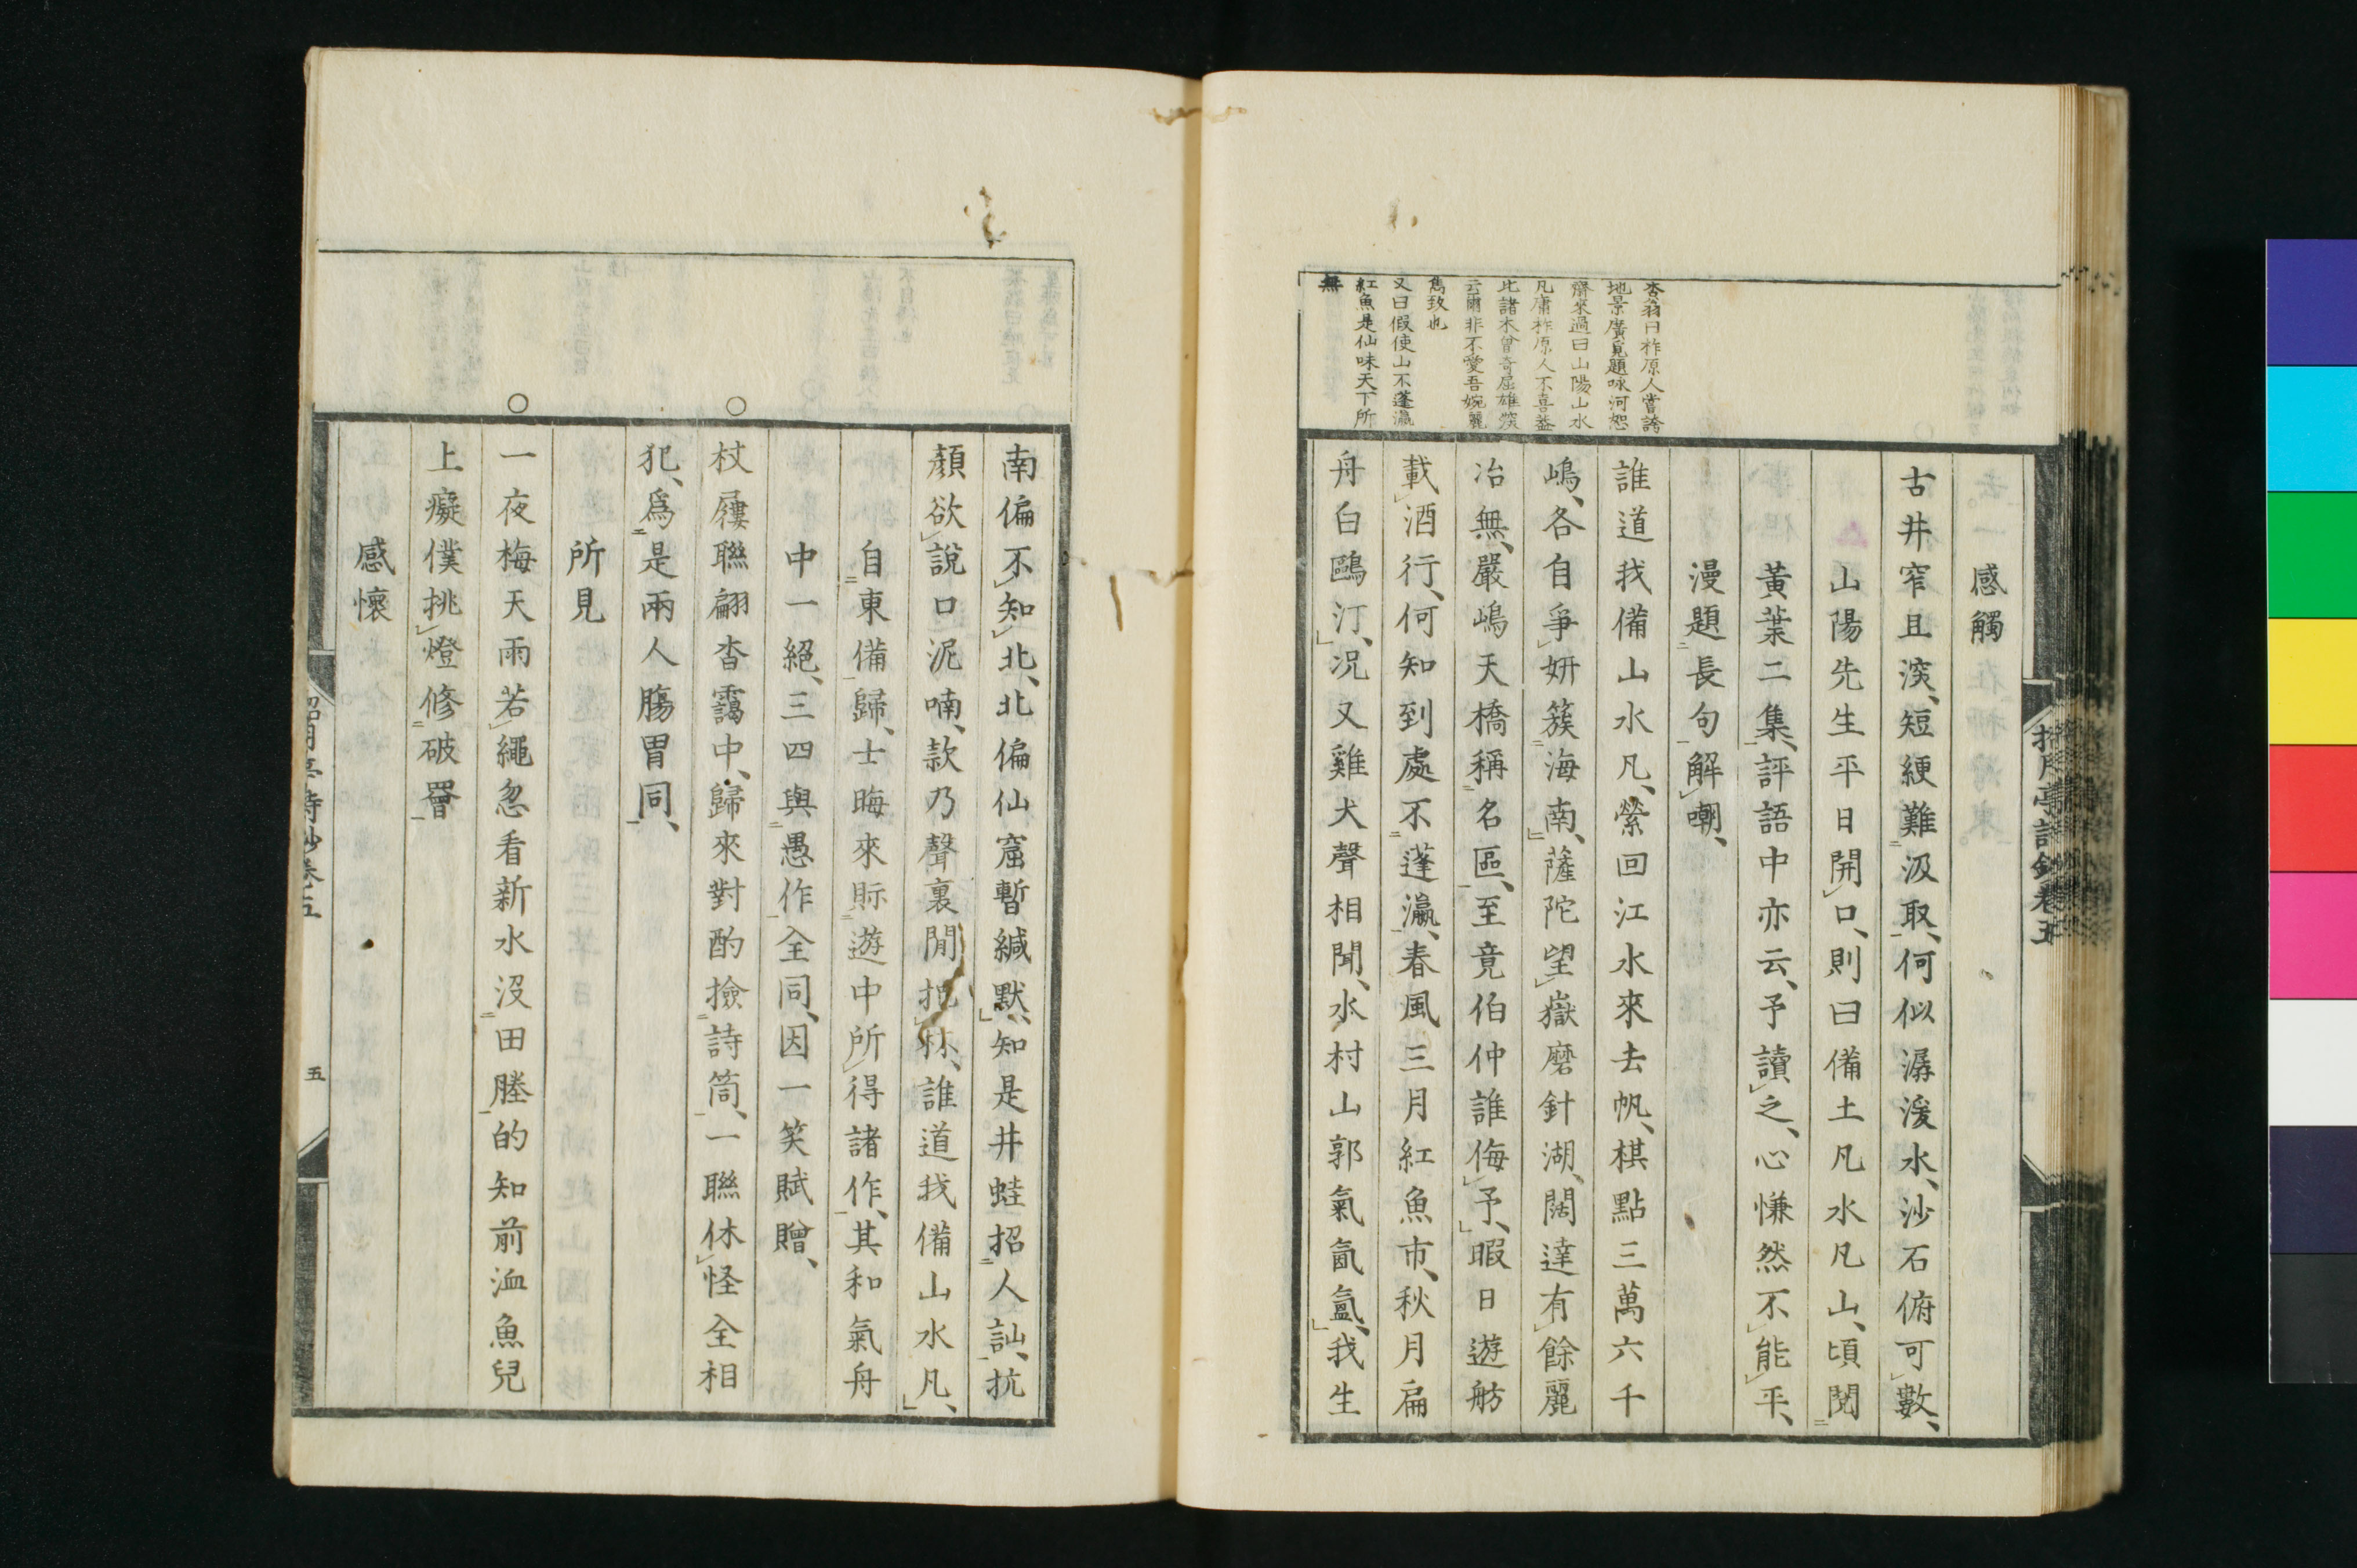 感觸
古井窄且深、短綆難汲取、何似潺湲水、沙石俯可數、
山陽先生平日開口、則曰備土凡水凡山、頃閱
黃葉二集、評語中亦云、予讀之、心慊然不能平、
漫題長句解嘲、
誰道我備山水凡、縈回江水來去帆、棋點三萬六千
嶋、各自爭妍簇海南、薩陀望嶽磨針湖、闊達有餘麗
冶無、嚴嶋天橋稱名區、至竟伯仲誰侮予、暇日遊舫
載酒行、何知到處不蓬瀛、春風三月紅魚市、秋月扁
舟白鷗汀、況又雞犬聲相聞、水村山郭氣氤氳、我生
杏翁曰柞原人嘗誇
地景廣覓題咏河恕
齋來過曰山陽山水
凡庸柞原人不喜蓋
比諸木曾奇屈雄深
云爾非不愛吾婉麗
雋玅也
又曰假使山不蓬瀛
紅魚是仙味天下所
無
南偏不知北、北偏仙窟暫緘默、知是井蛙招人訕、抗
顏欲說口泥喃、款乃聲裏閒把杯、誰道我備山水凡、
自東備歸、士晦來眎遊中所得諸作、其和氣舟
中一絕、三四與愚作全同、因一笑賦贈、
杖屨聯翩杳靄中、歸來對酌撿詩筒、一聯休怪全相
犯、爲是兩人膓胃同、
所見
一夜梅天雨若繩忽看新水沒田塍的知前洫魚兒
上癡僕挑燈修破罾
感懷
五